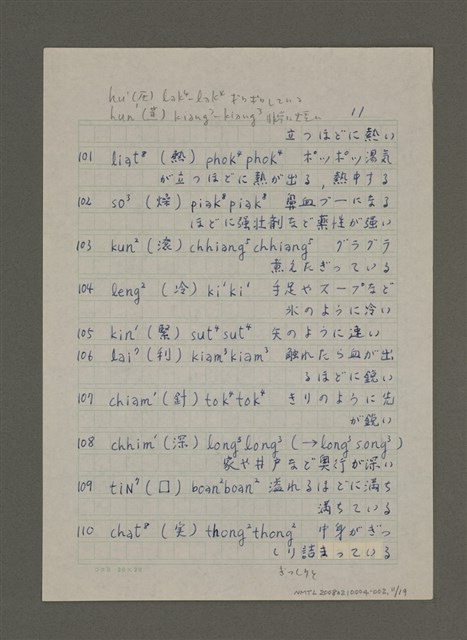 hu¹ (灰) lak⁴-lak⁴ ぼりぼりしている
hun¹ (葷) kiang³-kiang³ 非常に
11
立つほどに熱い
101 liat⁸ (熱) phok⁴phok⁴ ポッポッ湯気
が立つほどに熱が出る,熱中する
102 so³ (燥) piak⁸piak⁸ 鼻血ブーになる
ほどに強壮剤など薬性が強い
103 kun² (滚) chhiang⁵chhiang⁵ グラグラ
煮えたぎっている
104 leng² (冷) ki¹ki¹ 手足やスープなど
氷のように冷い
105 kin¹ (緊) sut⁴sut⁴ 矢のように速い
106 lai⁷ (利) kiam³kiam³ 触れたら血が出
るほどに鋭い
107 chiam¹ (針) tok⁴tok⁴ きりのように先
が鋭い
108 chhim¹ (深) long³long³ (→long³song³)
家や井戸など奥行が深い
109 tiN⁷ (口) boan²boan² 溢れるほどに満ち
満ちている
110 chat⁸ (実) thong²thong² 中身がぎっ
しり詰まっている
ぎっしりと
NMTL20080210004-002, 11/19